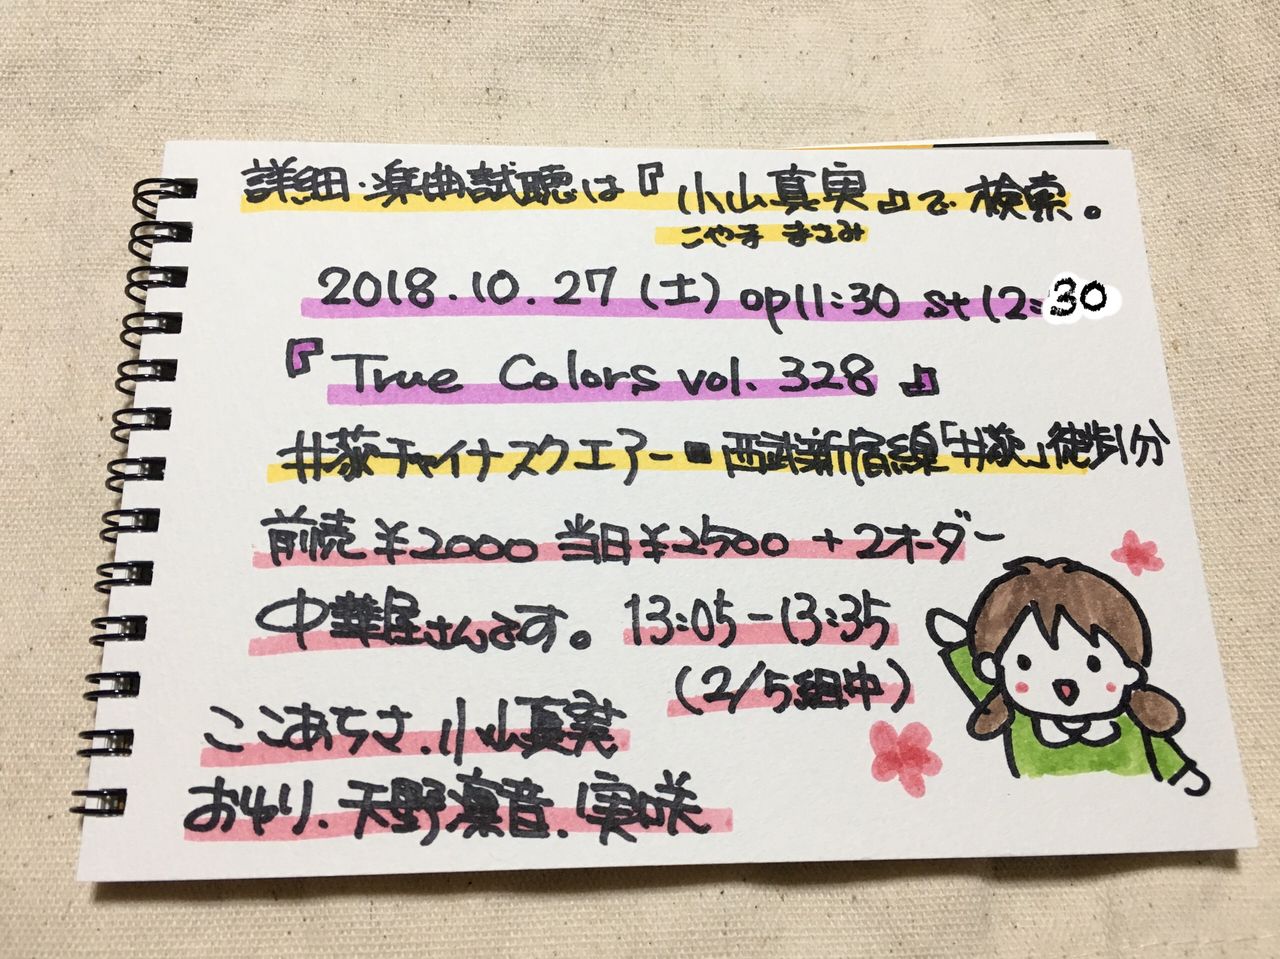 詳細・楽曲試聴は『小山真実』で検索。
こやま まさみ
2018.10.27(土) op11:30 st12:30
『True Colors vol.328』
井荻チャイナスクエアー■西武新宿線「井荻」徒歩1分
前売¥2000 当日¥2500 +2オーダー
中華屋さんです。 13:05-13:35
(2/5組中)
ここあちさ.小山真実
おゆり.天野凛音.実咲